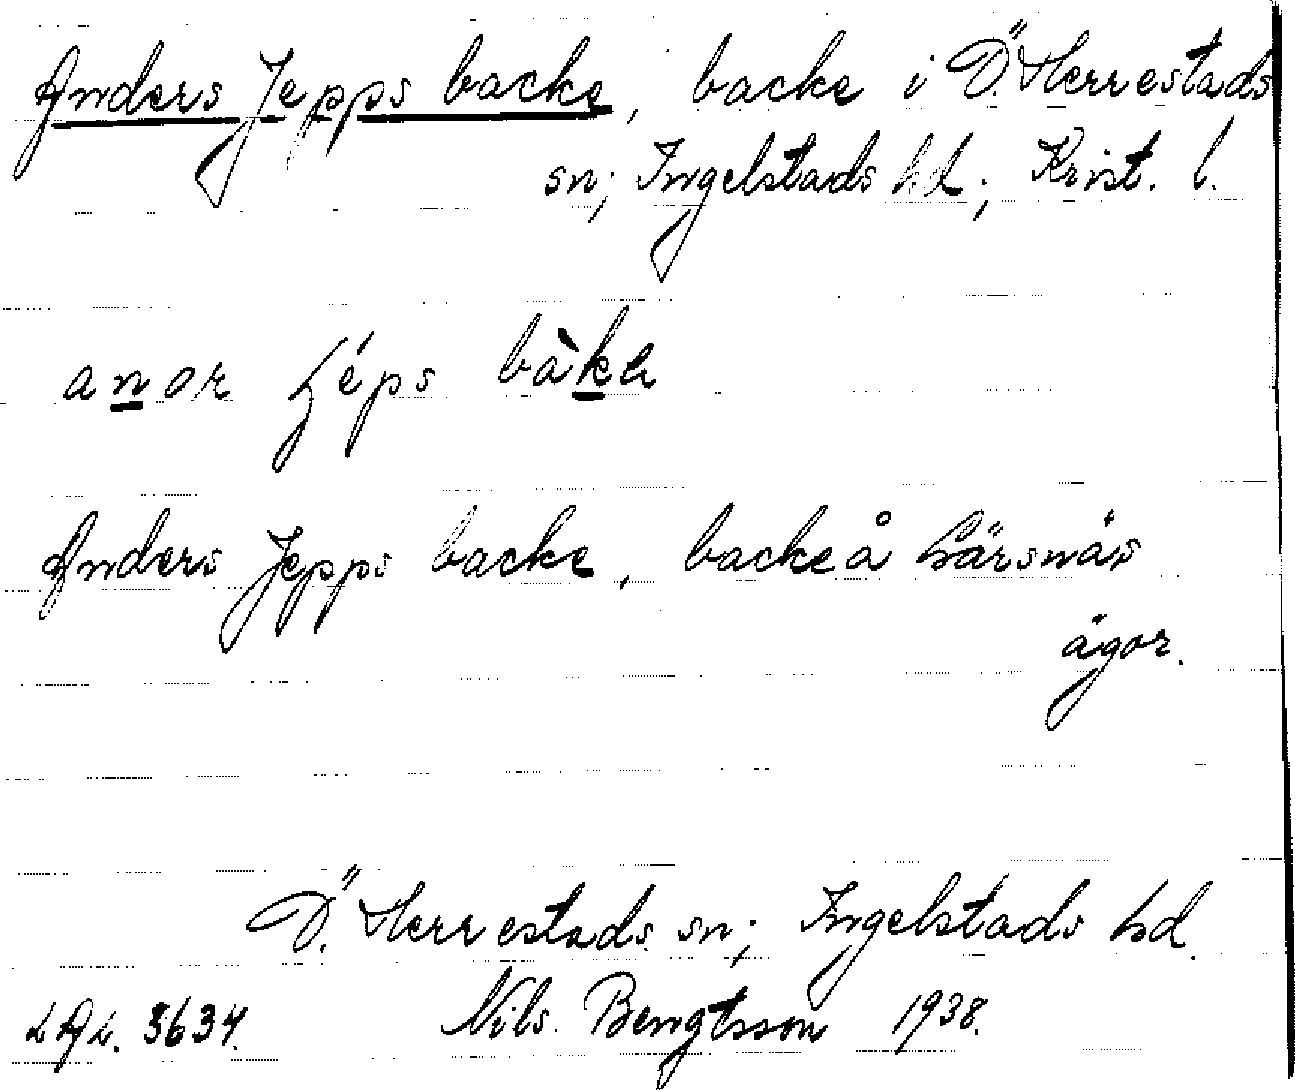 Anders Jepps backe, backe i Ö. Herrestads
sn; Ingelstads hd; Krist. l.
Anders Jepps backe, backe å Lärsnäs
ägor.
Ö. Herrestads sn; Ingelstads hd.
LAL. 3634. Nils Bengtsson 1938.